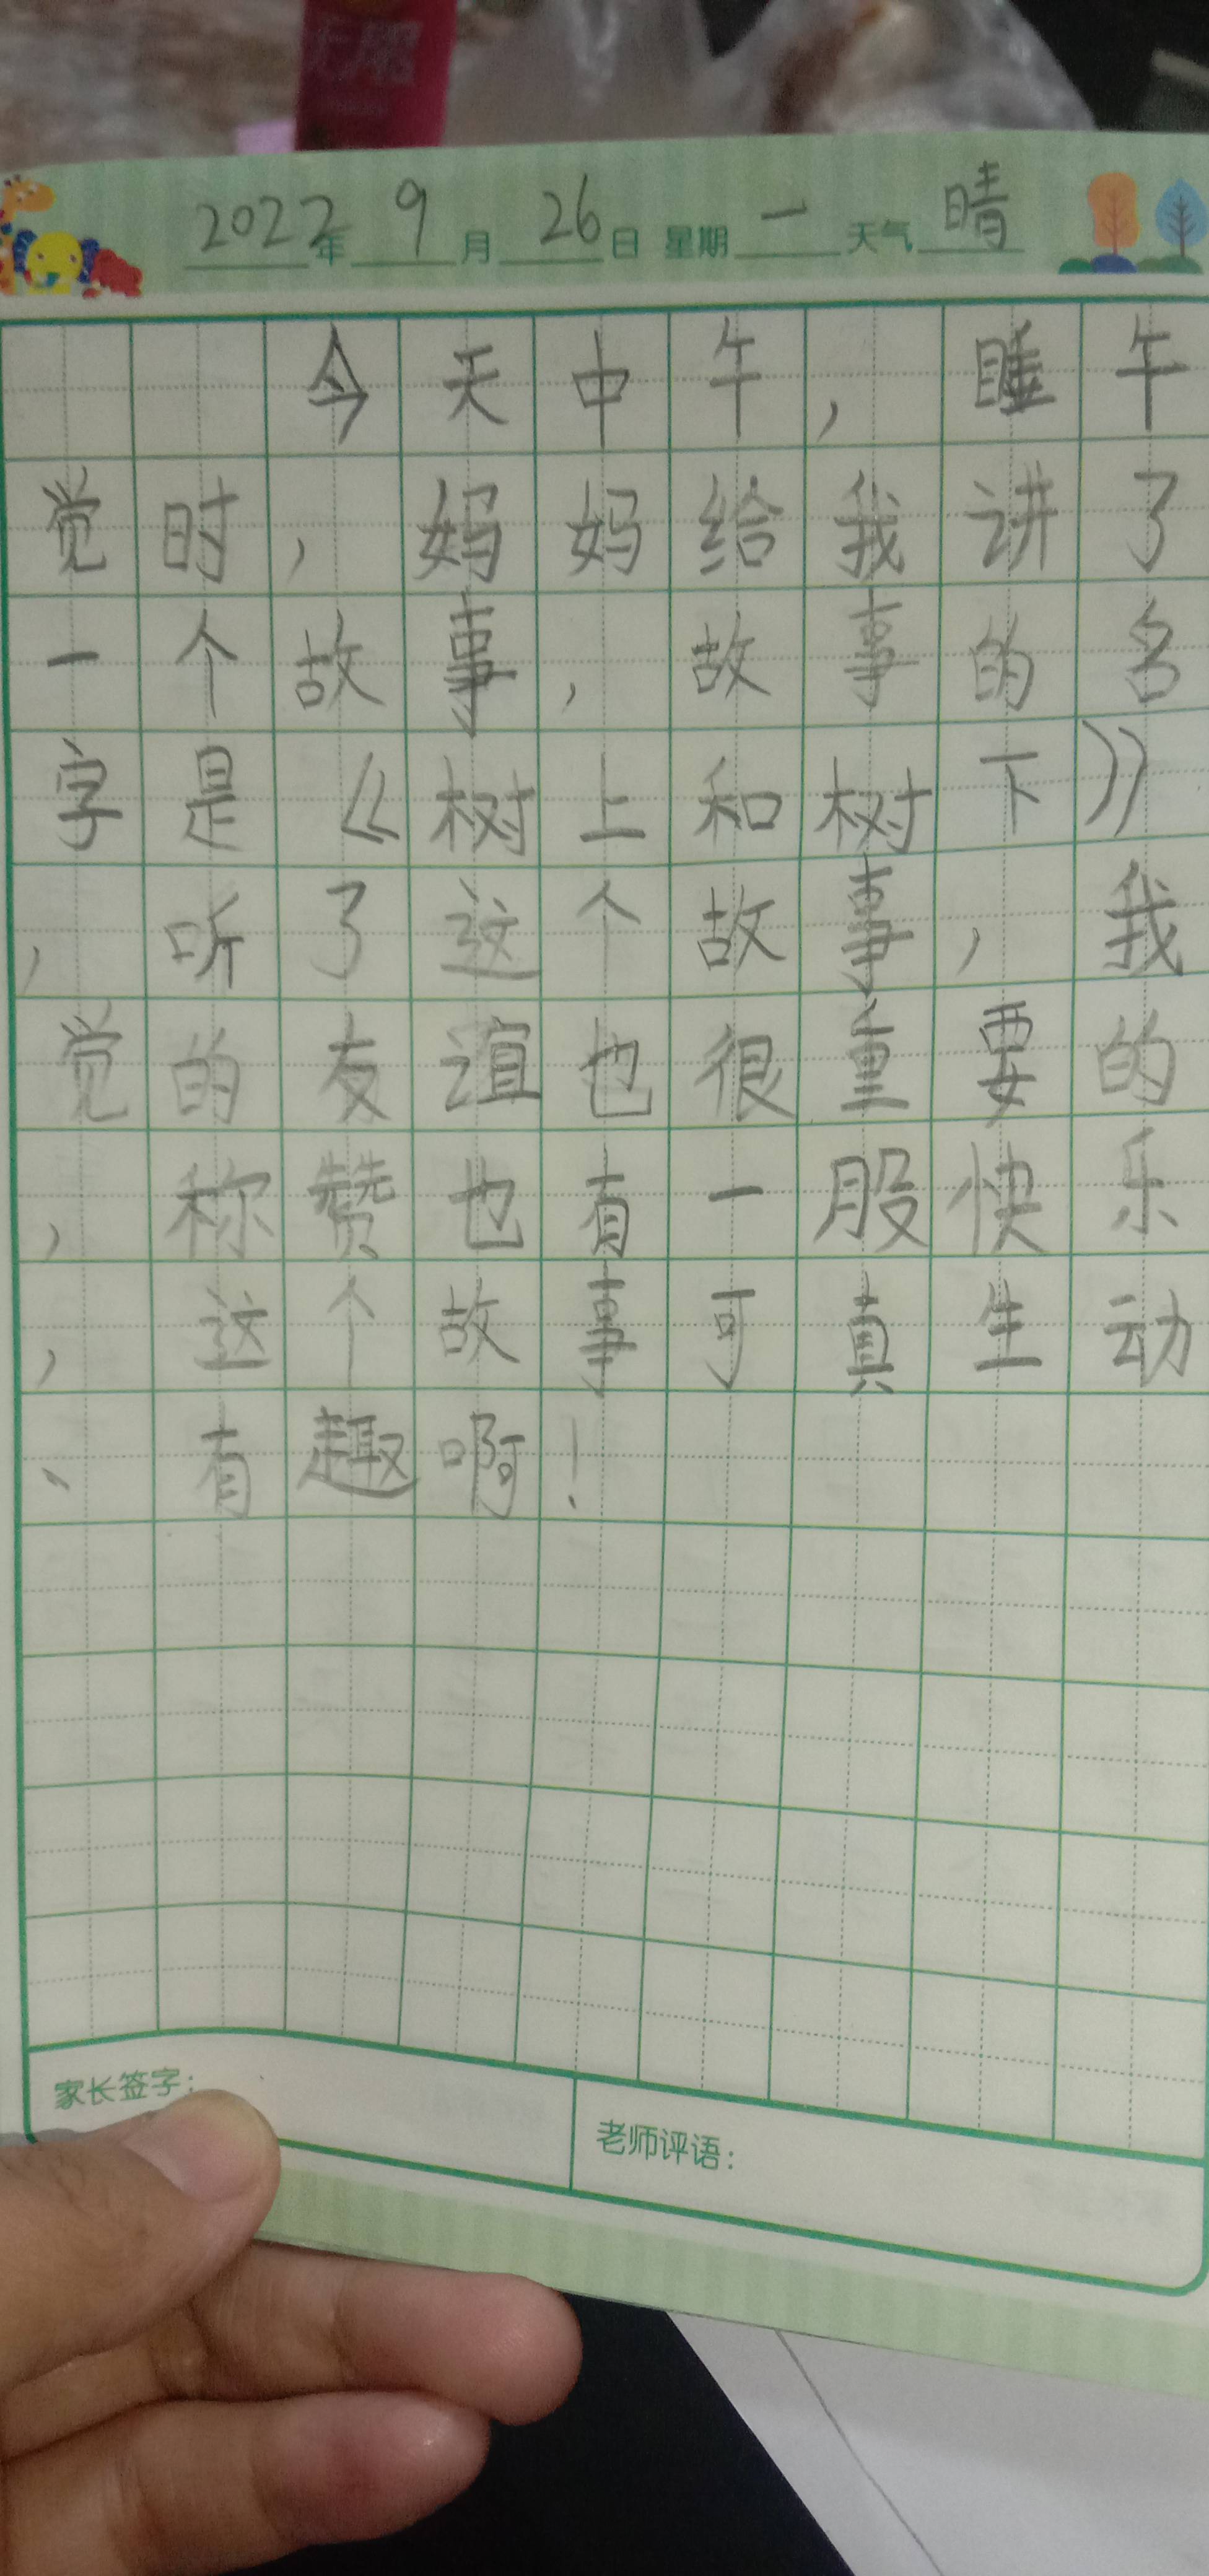 2022年 9月 26日 星期 一 天气 晴
今天中午，睡午
觉时，妈妈给我讲了
一个故事，故事的名
字是《树上和树下》
，听了这个故事，我
觉的友谊也很重要的
，称赞也有一股快乐
，这个故事可真生动
、有趣啊！
家长签字：
老师评语：